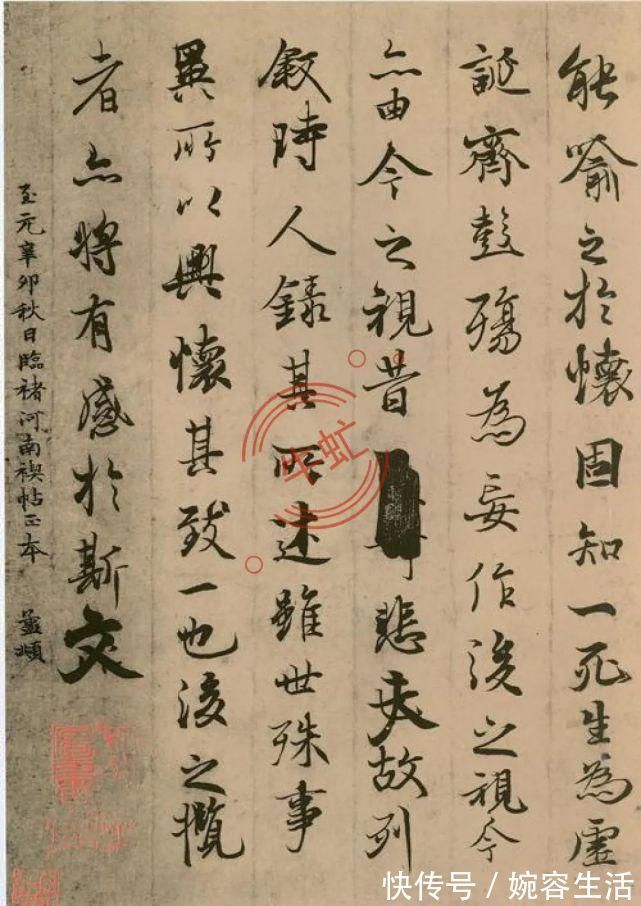 能喻之於懷固知一死生為虛
誕齊彭殤為妄作後之視今
亦由今之視昔悲夫故列
敘時人錄其所述雖世殊事
異所以興懷其致一也後之攬
者亦將有感於斯文
至元辛卯秋日臨褚河南禊帖正本 孟頫
快传号 / 婉容生活